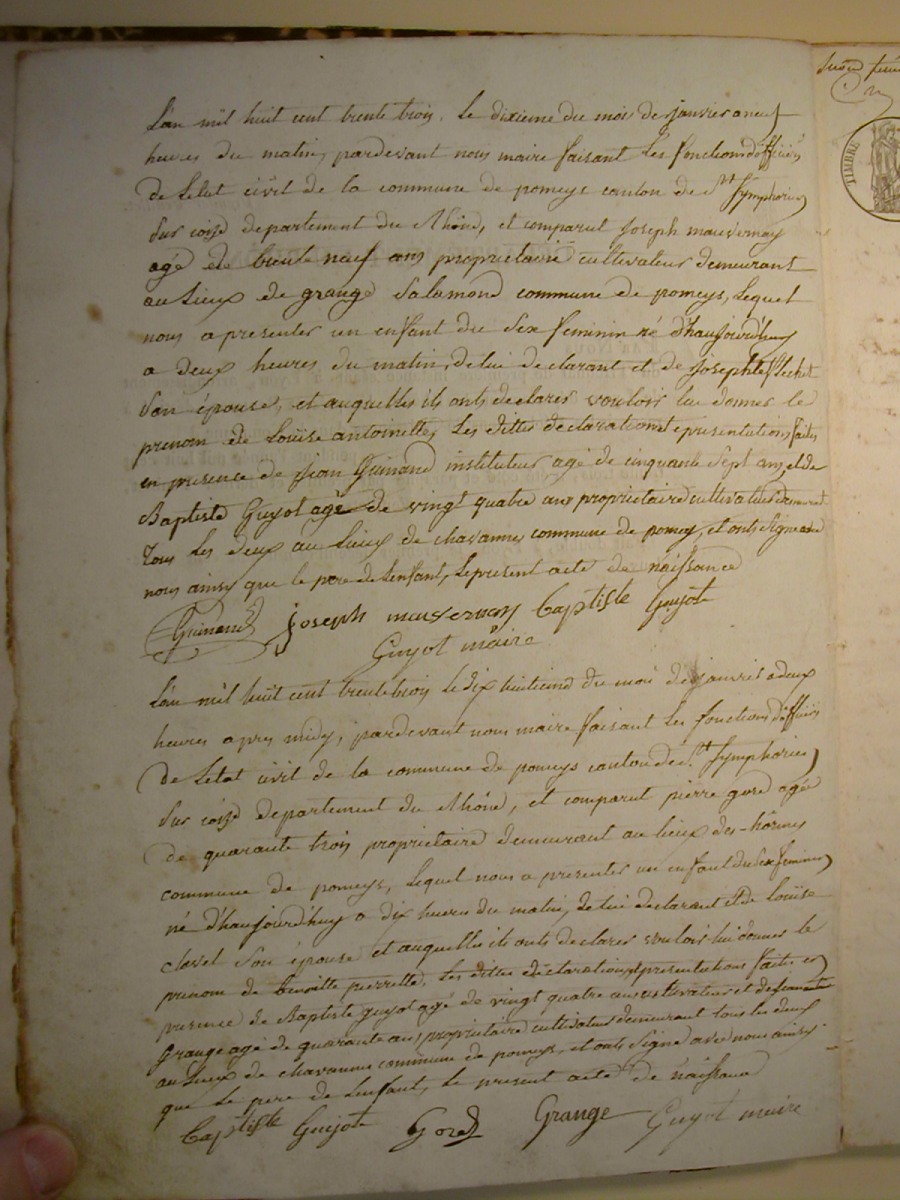 L'an mil huit cent trente trois. Le dixieme du mois de janvier a neuf
heures du matin, pardevant nous maire faisant les fonctions d'officiers
de Letat civil de la commune de pomeys canton de St Symphorien
Sur coise departement du Rhône, et comparut Joseph mauvernay
agé de trente neuf ans proprietaire cultivateur demeurant
au Lieux de grange Salamond commune de pomeys, Lequel
nous a presenter un enfant du Sex feminin né d'haujourd'huy
a deux heures du matin, de lui declarant et de Josephte
Son épouse, et auquelles ils onts declarer vouloir lui donner le
prenom de Louise antoinette, Les dittes declaration et presentutions faites
en presence de jean Guinand instituteur agé de cinquante Sept ans, et de
Baptiste Guyot agé de vingt quatre ans proprietaire cultivateur demeurant
Tous Les deux au Lieux de chavannes commune de pomeys, et onts Signe avec
nous ainsy que le pere de Lenfant, Le present acte de naissance
Guinand Joseph mauvernay Baptiste Guyot
Guyot maire
L'an mil huit cent trente trois le dix huitieme du mois de janvier a deux
heures apres midy, pardevant nous maire faisant Les fonctions d'officiers
de Letat civil de la commune de pomeys canton de St Symphorien
Sur coise departement du Rhône, et comparut pierre gord agé
de quarante trois proprietaire demeurant au lieux des-hormes
commune de pomeys, Lequel nous a presenter un enfant du Sex feminin
né d'haujourd'huy a dix heures du matin, de lui declarant et de Louise
clavel Son épouse et auquelles ils onts declarer vouloir lui donner le
prenom de benoitte pierrette, Les dittes declarations et presentutions faites en
presence de Baptiste guyot agé de vingt quatre ans cultivateur et de
Grange agé de quarante ans, proprietaire cultivateur demeurant tous les deux
au Lieux de chavannes commune de pomeys, et onts Signé avec nous ainsy
que Le pere de Lenfant, Le present acte de naissance
Baptiste Guyot Gord Grange Guyot maire
TIMBRE